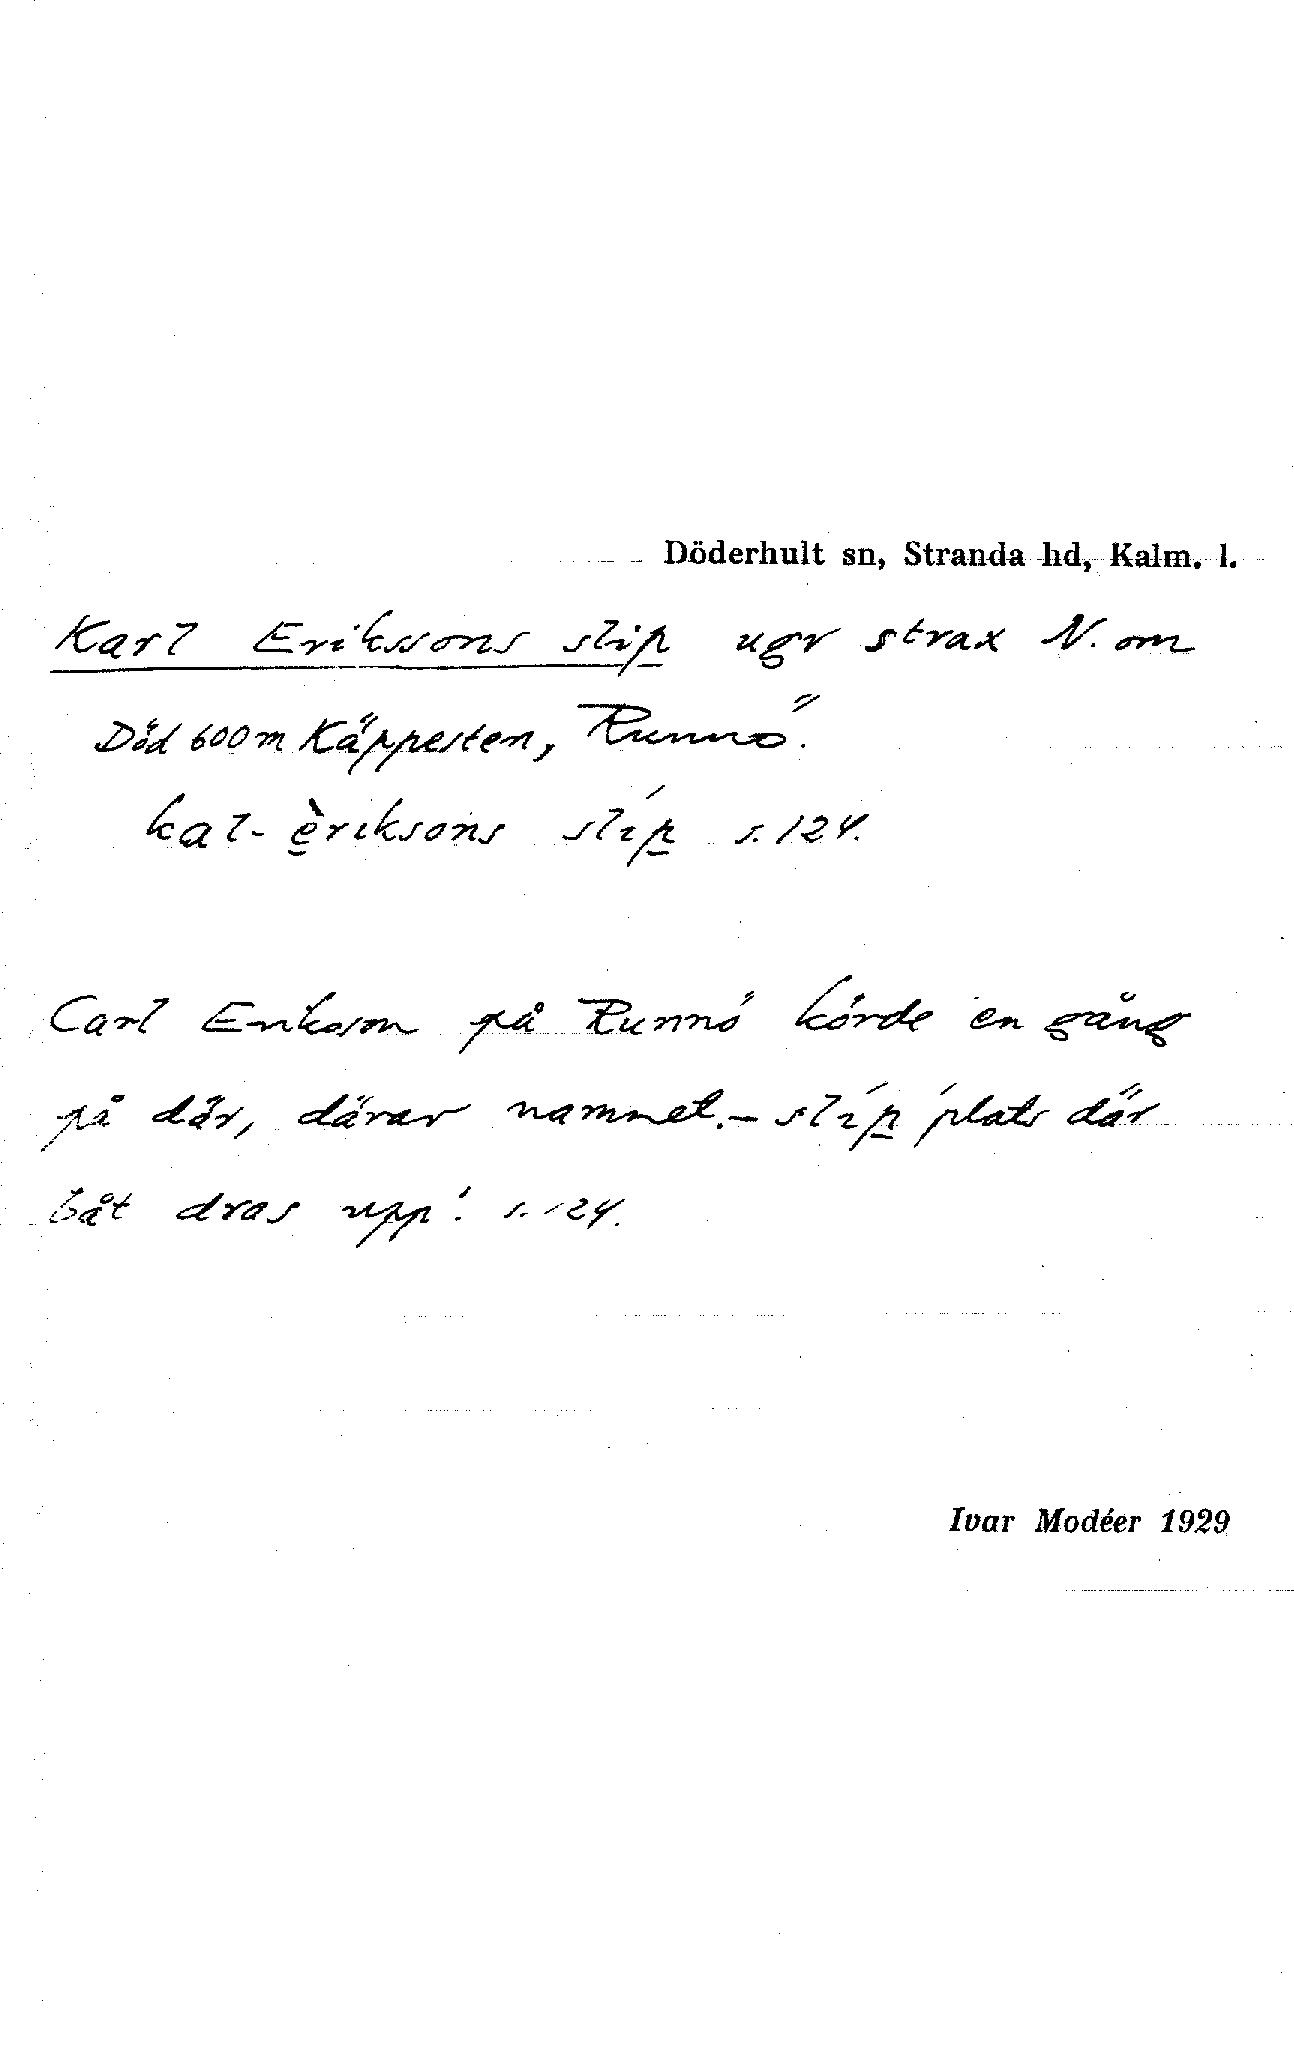 Döderhult sn, Stranda hd, Kalm. l.
Karl Erikssons slip ugr strax N. om
Död 600m Käppesten, Runnö.
kal-èriksons slíp s. 124.
Carl Eriksson på Runnö körde en gång
på där, därav namnet. – slíp 'plats där
båt dras upp'. s. 124.
Ivar Modéer 1929